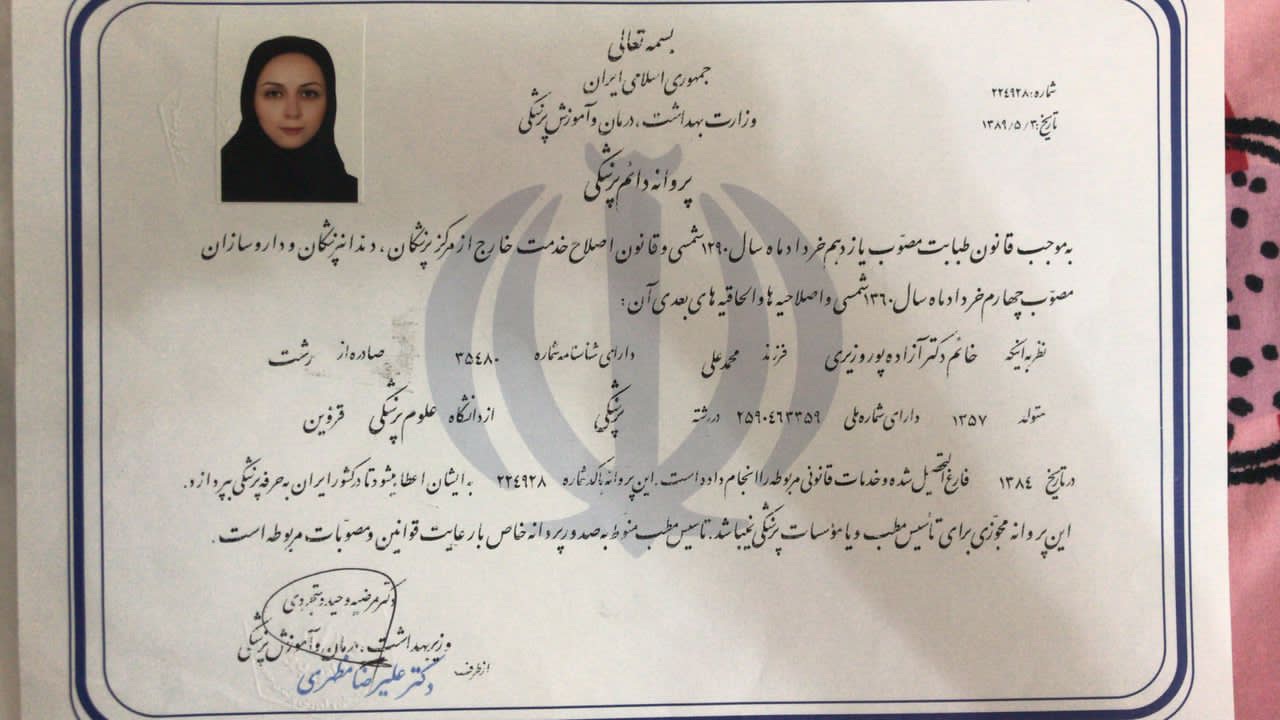 بسمه تعالی
جمهوری اسلامی ایران
وزارت بهداشت، درمان و آموزش پزشکی
شماره: ۲۲٤۹۲۸
تاریخ: ۱۳۸۹/۵/۳
پروانه دائم پزشکی
به موجب قانون طبابت مصوّب یازدهم خرداد ماه سال ۱۲۹۰ شمسی و قانون اصلاح خدمت خارج از مرکز پزشکان، دندانپزشکان و داروسازان
مصوّب چهارم خرداد ماه سال ۱۳۶۰ شمسی و اصلاحیه ها و الحاقیه های بعدی آن:
نظر به اینکه خانم دکتر آزاده پور وزیری فرزند محمدعلی دارای شناسنامه شماره ۳۵٤۸۰ صادره از رشت
متولد ۱۳۵۷ دارای شماره ملی ۲۵۹۰٤۶۳۳۵۹ در رشته پزشکی از دانشگاه علوم پزشکی قزوین
در تاریخ ۱۳۸٤ فارغ التحصیل شده و خدمات قانونی مربوطه را انجام داده است. این پروانه با کد شماره ۲۲٤۹۲۸ به ایشان اعطا میشود تا در کشور ایران به حرفه پزشکی بپردازد.
این پروانه مجوّزی برای تأسیس مطب و یا مؤسسات پزشکی نمیباشد. تاسیس مطب منوّط به صدور پروانه خاص با رعایت قوانین و مصوّبات مربوطه است.
دکتر مرضیه وحید دستجردی
وزیر بهداشت، درمان و آموزش پزشکی
از طرف
دکتر علیرضا مظهری